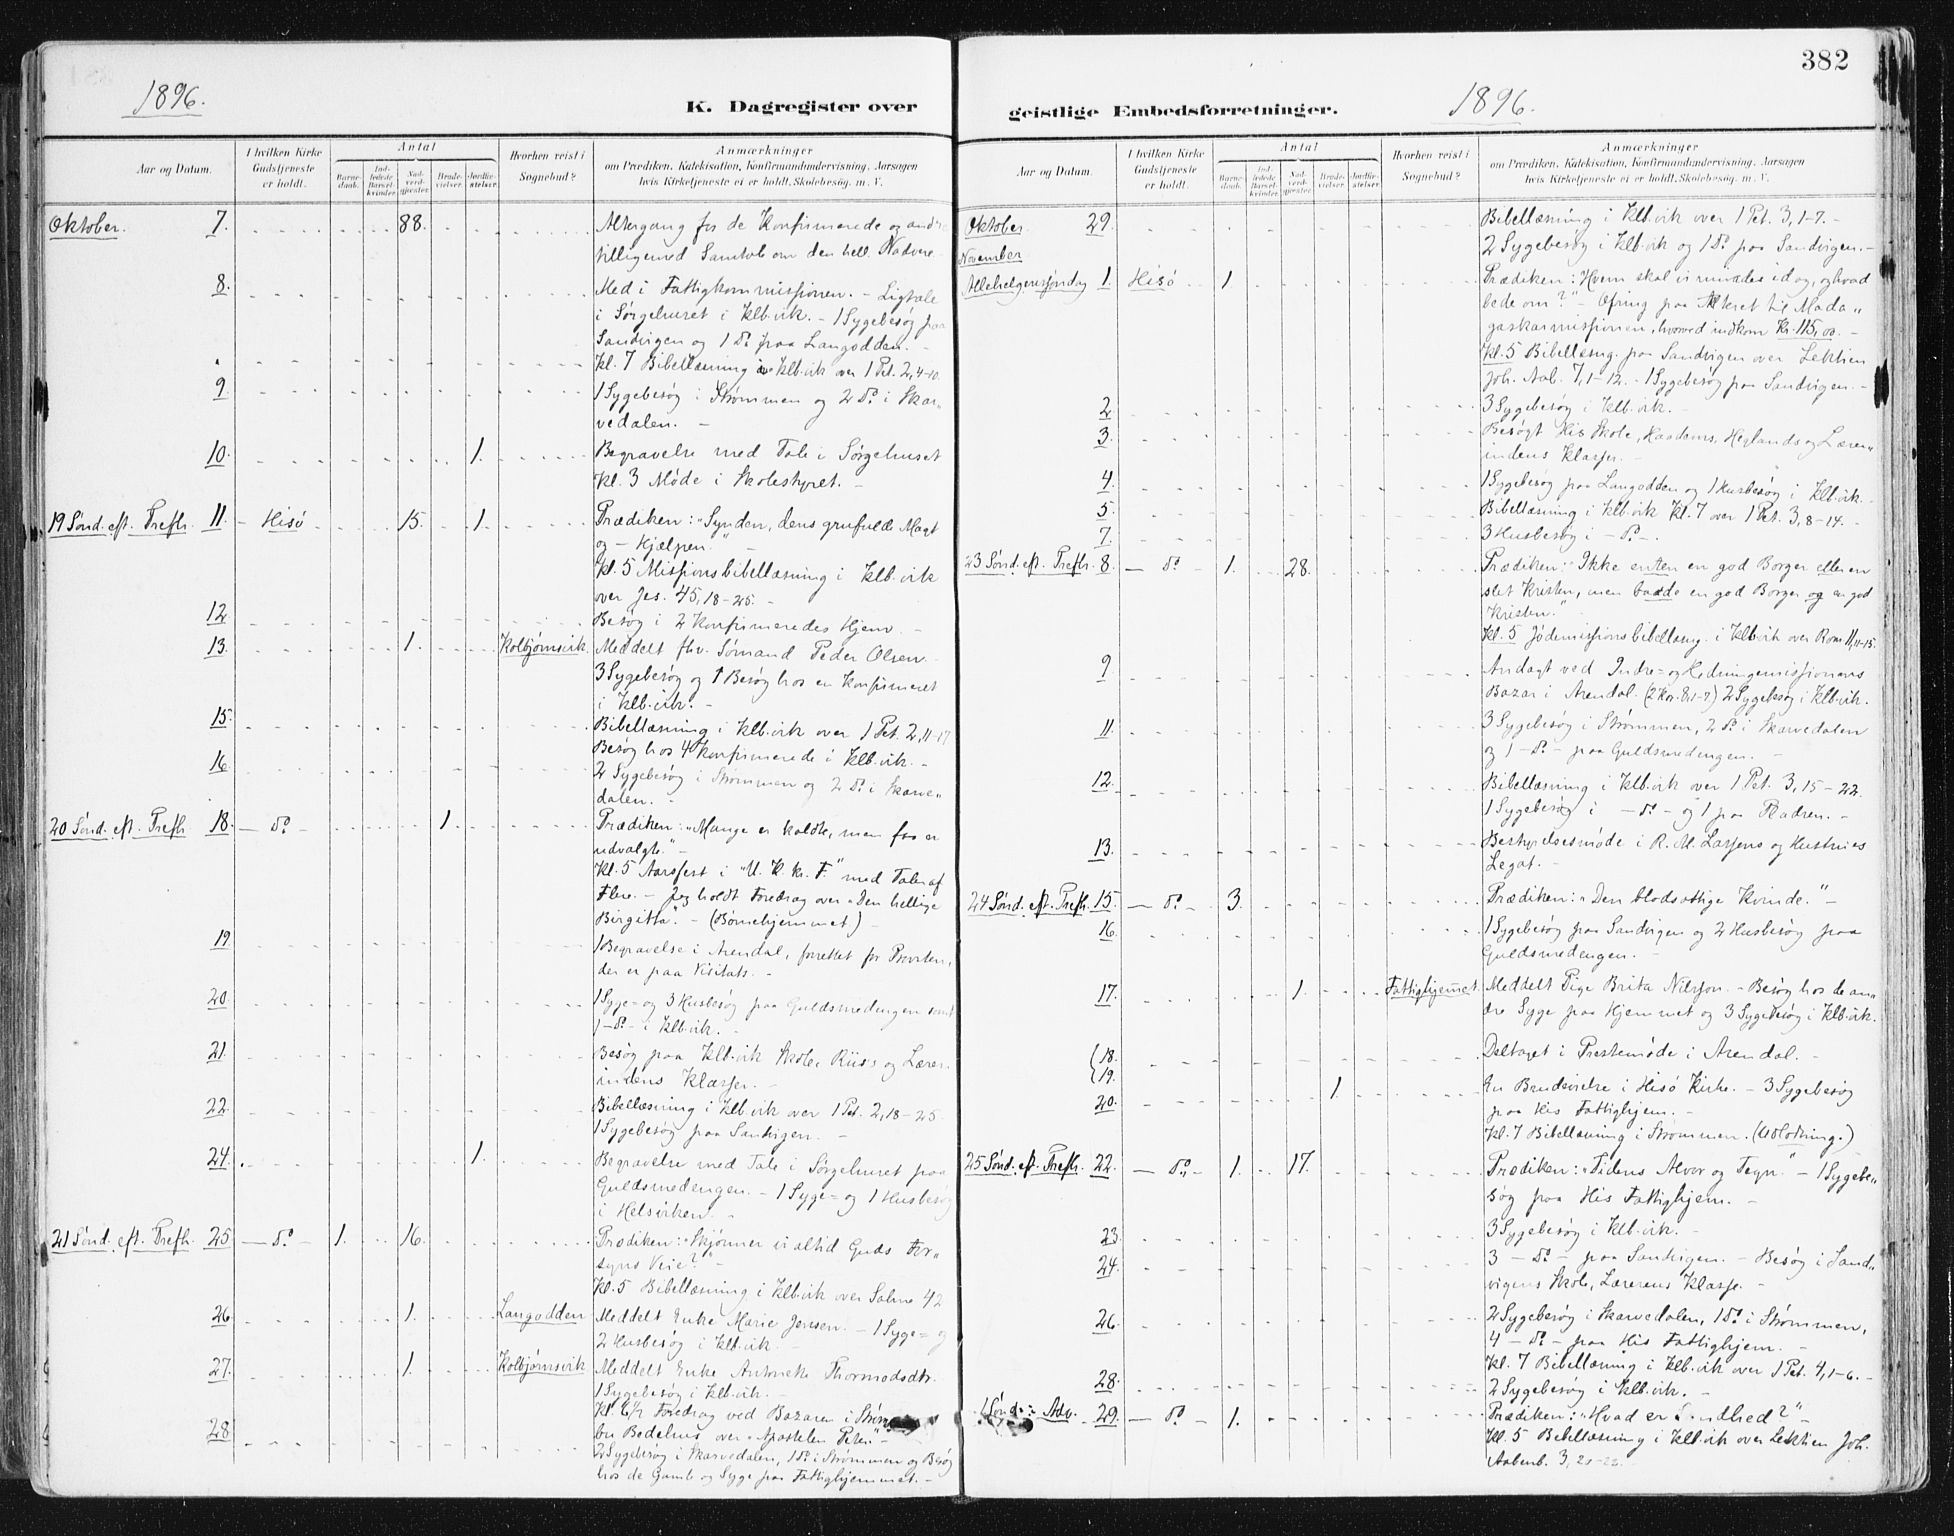 382
1896.
K. Dagregister over
geistlige Embedsforretninger.
1896.
Aar og Datum.
I hvilken Kirke
Gudstjeneste
er holdt.
Antal
Barne-
daab.
Ind-
ledede
Barsel-
kvinder.
Nad-
verd-
gjester.
Brude-
vielser.
Jordfæ-
stelser.
Hvorhen reist i
Sognebud?
Anmærkninger
om Prædiken, Katekisation, Konfirmandundervisning, Aarsagen
hvis Kirketjeneste ei er holdt, Skolebesøg m. V.
Oktober. 7. 88. Altergang for de Konfirmerede og andre
tilligemed Samtale om den hell. Nadvere
8. Med i Fattigkommissionen. - Ligtale
i Sørgehuset i Klb.vik. - 1 Sygebesøg paa
Sandvigen og 1 Do paa Langodden. -
Kl. 7 Bibellæsning i Klb.vik over 1 Pet. 2, 4-10.
9 1 Sygebesøg i Strømmen og 2 Do i Skar„
vedalen. -
10. 1. Begravelse med Tale i Sørgehuset
Kl. 3 Møde i Skolestyret. -
19 Sønd. eft. Trefh. 11. - Hisø 15. 1. Prædiken: „Synden, dens grufulde Magt
og - Hjælpen." -
Kl. 5 Missionsbibellæsning i Klb.vik
over Jes. 45, 18-25. -
12 Besøg i 2 Konfirmeredes Hjem. -
13. 1. Kolbjørnsvik. Meddelt fhv. Sømand Peder Olsen
3 Sygebesøg og 1 Besøg hos en Konfirmeret
i Klb.vik. -
15. Bibellæsning i Klb.vik over 1 Pet. 2, 11-17
16 Besøg hos 4 Konfirmerede i Klb.vik. -
2 Sygebesøg i Strømmen og 2 Do i Skarve„
dalen. -
20 Sønd. eft. Trefh 18. - Do 1. Prædiken: „Mange er kaldte, men faa er
udvalgte." -
Kl. 5 Aarsfest i "U. K. kr. F." med Taler af
Flere. - Jeg holdt Foredrag over „Den hellige
Birgitta". - (Børnehjemmet) -
19 1 Begravelse i Arendal, forrettet for Provsten,
der er paa Visitats. -
20. 1 Syge= og 3 Husbesøg paa Guldsmedengen samt
1 - Do - i Klb.vik. -
21. Besøg paa Klb.vik Skole, Riiss og Lærer„
indens Klasser. -
22. Bibellæsning i Klb.vik over 1 Pet. 2, 18-25
1 Sygebesøg paa Sandvigen. -
24. 1. Begravelse med Tale i Sørgehuset paa
Guldsmedengen. - 1 Syge= og 1 Husbesøg
i Helsviken. -
21 Sønd. eft. Trefh. 25 - Do - 1. 16. Prædiken: „Skjønner vi altid Guds For„
syns Veie?" -
Kl. 5 Bibellæsning i Klb.vik over Salme 42
26. 1. Langodden Meddelt Enke Marie Jensen. - 1 Syge= og
2 Husbesøg i Klb.vik. -
27. 1. Kolbjørnsvik Meddelt Enke Thormodsdtr.
1 Sygebesøg i Klb.vik. -
Kl. 6½ Foredrag ved Bazaren i
Bedehus over „Apostelen Peter" -
28 2 Sygebesøg i Skarvedalen, 1 Do i Strømmen og Besøg
hos de Gamle og Syge paa Fattighjemmet. -
Aar og Datum.
I hvilken Kirke
Gudstjeneste
er holdt.
Antal
Barne-
daab.
Ind-
ledede
Barsel-
kvinder.
Nad-
verd-
gjester.
Brude-
vielser.
Jordfæ-
stelser.
Hvorhen reist i
Sognebud?
Anmærkninger
om Prædiken, Katekisation, Konfirmandundervisning, Aarsagen
hvis Kirketjeneste ei er holdt, Skolebesøg m. V.
Oktober. 29. Bibellæsning i Klb.vik over 1 Pet. 3, 1-7. -
2 Sygebesøg i Klb.vik og 1 Do paa Sandvigen. -
November
Allehelgenssøndag 1. Hisø 1. Prædiken: „Hvem skal vi mindes idag, og hvad
bede om?" - Ofring paa Alteret til Mada„
gaskarmissionen, hvorved indkom Kr. 115,00. -
Kl. 5 Bibellæsng. paa Sandvigen over Lektien
Joh. Aab. 7, 1-12. - 1 Sygebesøg paa Sandvigen. -
2 3 Sygebesøg i Klb.vik. -
3. Besøgt His Skole, Haadems, Heglands og Lærer„
indens Klasser. -
4. 1 Sygebesøg paa Langodden og 1 Husbesøg i Klb.vik.
5. Bibellæsning i Klb.vik Kl. 7 over 1 Pet. 3, 8-14. -
7. 3 Husbesøg i - Do -.
23 Sønd. eft. Trefh. 8. - Do - 1. 28. Prædiken: „Ikke enten en god Borger eller en
slet Kristen, men baade en god Borger og en god
Kristen." -
Kl. 5 Jødemissionsbibellæsng. i Klb.vik over Rom. 11, 11-15.
9 Andagt ved Indre= og Hedningemissionens
Bazar i Arendal. (2 Kor. 8, 1-7) 2 Sygebesøg i Klb.vik.
11. 3 Sygebesøg i Strømmen, 2 Do i Skarvedalen
og 1 - Do - paa Guldsmedengen. -
12. Bibellæsning i Klb.vik over 1 Pet. 3, 15-22.
1 Sygebesøg i - Do - og 1 paa Fladen. -
13. Bestyrelsesmøde i R. M. Lassens og Hustrues
Legat. -
24 Sønd. eft. Trefh. 15. - Do - 3. Prædiken: „Den blodsottige Kvinde." -
16. 1 Sygebesøg paa Sandvigen og 2 Husbesøg paa
Guldsmedengen. -
17. 1. Fattighjemmet. Meddelt Pige Brita Nilsson. - Besøg hos de an„
dre Syge paa Hjemmet og 3 Sygebesøg i Klb.vik.
18.
19. Deltaget i Prestemøde i Arendal. -
20. 1. En Brudevielse i Hisø Kirke. - 3 Sygebesøg
paa His Fattighjem. -
Kl. 7 Bibellæsning i Strømmen. (Udlodning.)
25 Sønd. eft. Trefh. 22. - Do - 1. 17. Prædiken: „Tidens Alvor og Tegn." - 1 Sygebe„
søg paa His Fattighjem. -
23. 3 Sygebesøg i Klb.vik. -
24. 3 - Do - paa Sandvigen. - Besøg i Sand„
vigens Skole, Lærerens Klasse. -
26. 2 Sygebesøg i Skarvedalen, 1 Do i Strømmen,
4 - Do - paa His Fattighjem. -
Kl. 7 Bibellæsning i Klb.vik over 1 Pet. 4, 1-6. -
28. 2 Sygebesøg i Klb.vik. -
1 Sønd. i Adv. 29. - Do - 1. Prædiken: „Hvad er Sandhed?" -
Kl. 5 Bibellæsning i Klb.vik over Lektien Joh.
Aabenb. 3, 20-22.